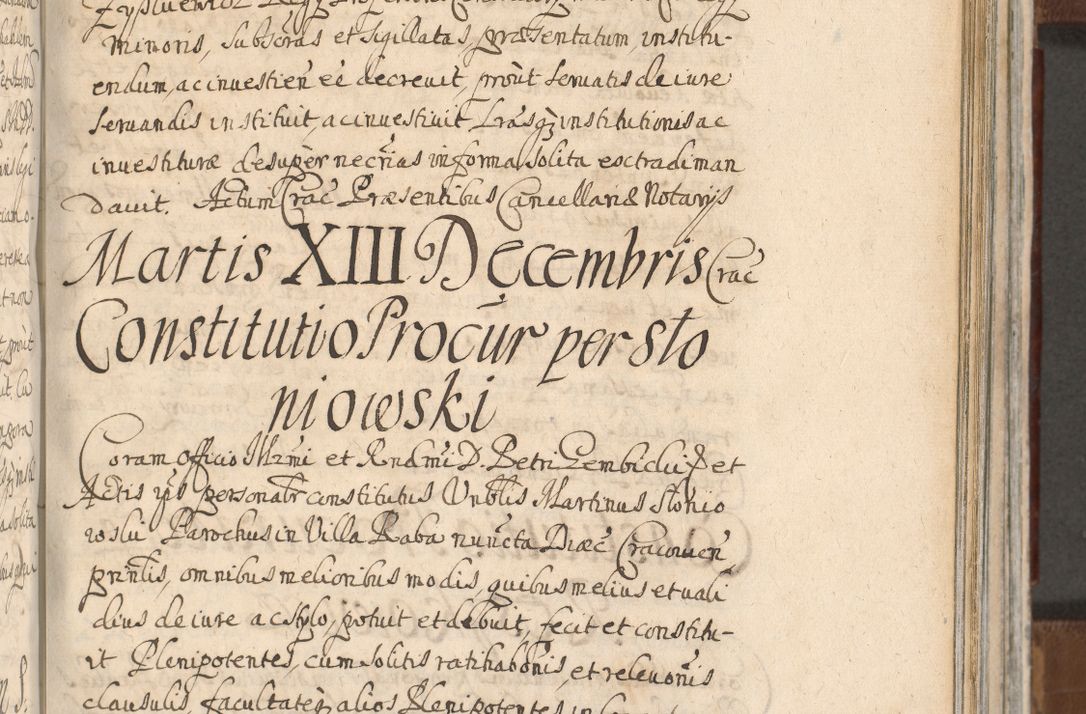 minoris, subscras et sigillatas, præsentatum, institu-
endum, ac investien ee decrevit, proùt servatis de iure
servandis instituit, ac investivit Lras institutionis ac
investituræ desupèr necrias in forma solita extradi man
davit. Actum Crac Præsentibus Cancellari & Notarijs
Martis XIII Decembris Crac
Constitutio Procur per Sło
niowski
Coram Officio Illmi et Rndmi D. Petri Gembicki P et
Actis ijs personalr constitutus Vnblis Martinus Słonio
wski Parochus in Villa Raba nuncta Diæc Cracovien
prntis, omnibus melioribus modis, quibus melius et vali
dius de iure ac stylo, potuit et debuit, fecit et constitu-
it Plenipotentes, cum solitis ratihabonis, et relevonis
clausulis, facultate alios Plenipotentes in